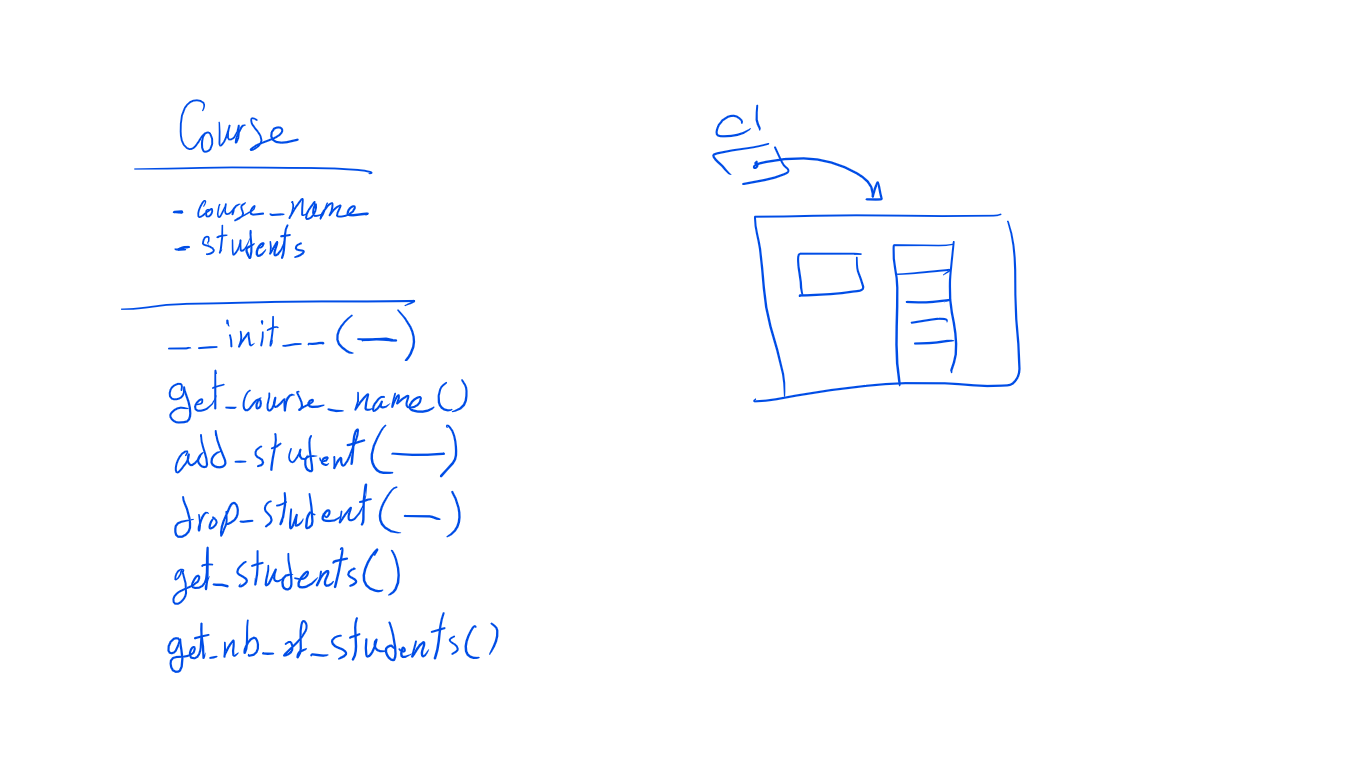 Course
- course_name
- students
__init__(—)
get_course_name()
add_student(—)
drop_student(—)
get_students()
get_nb_of_students()
c1